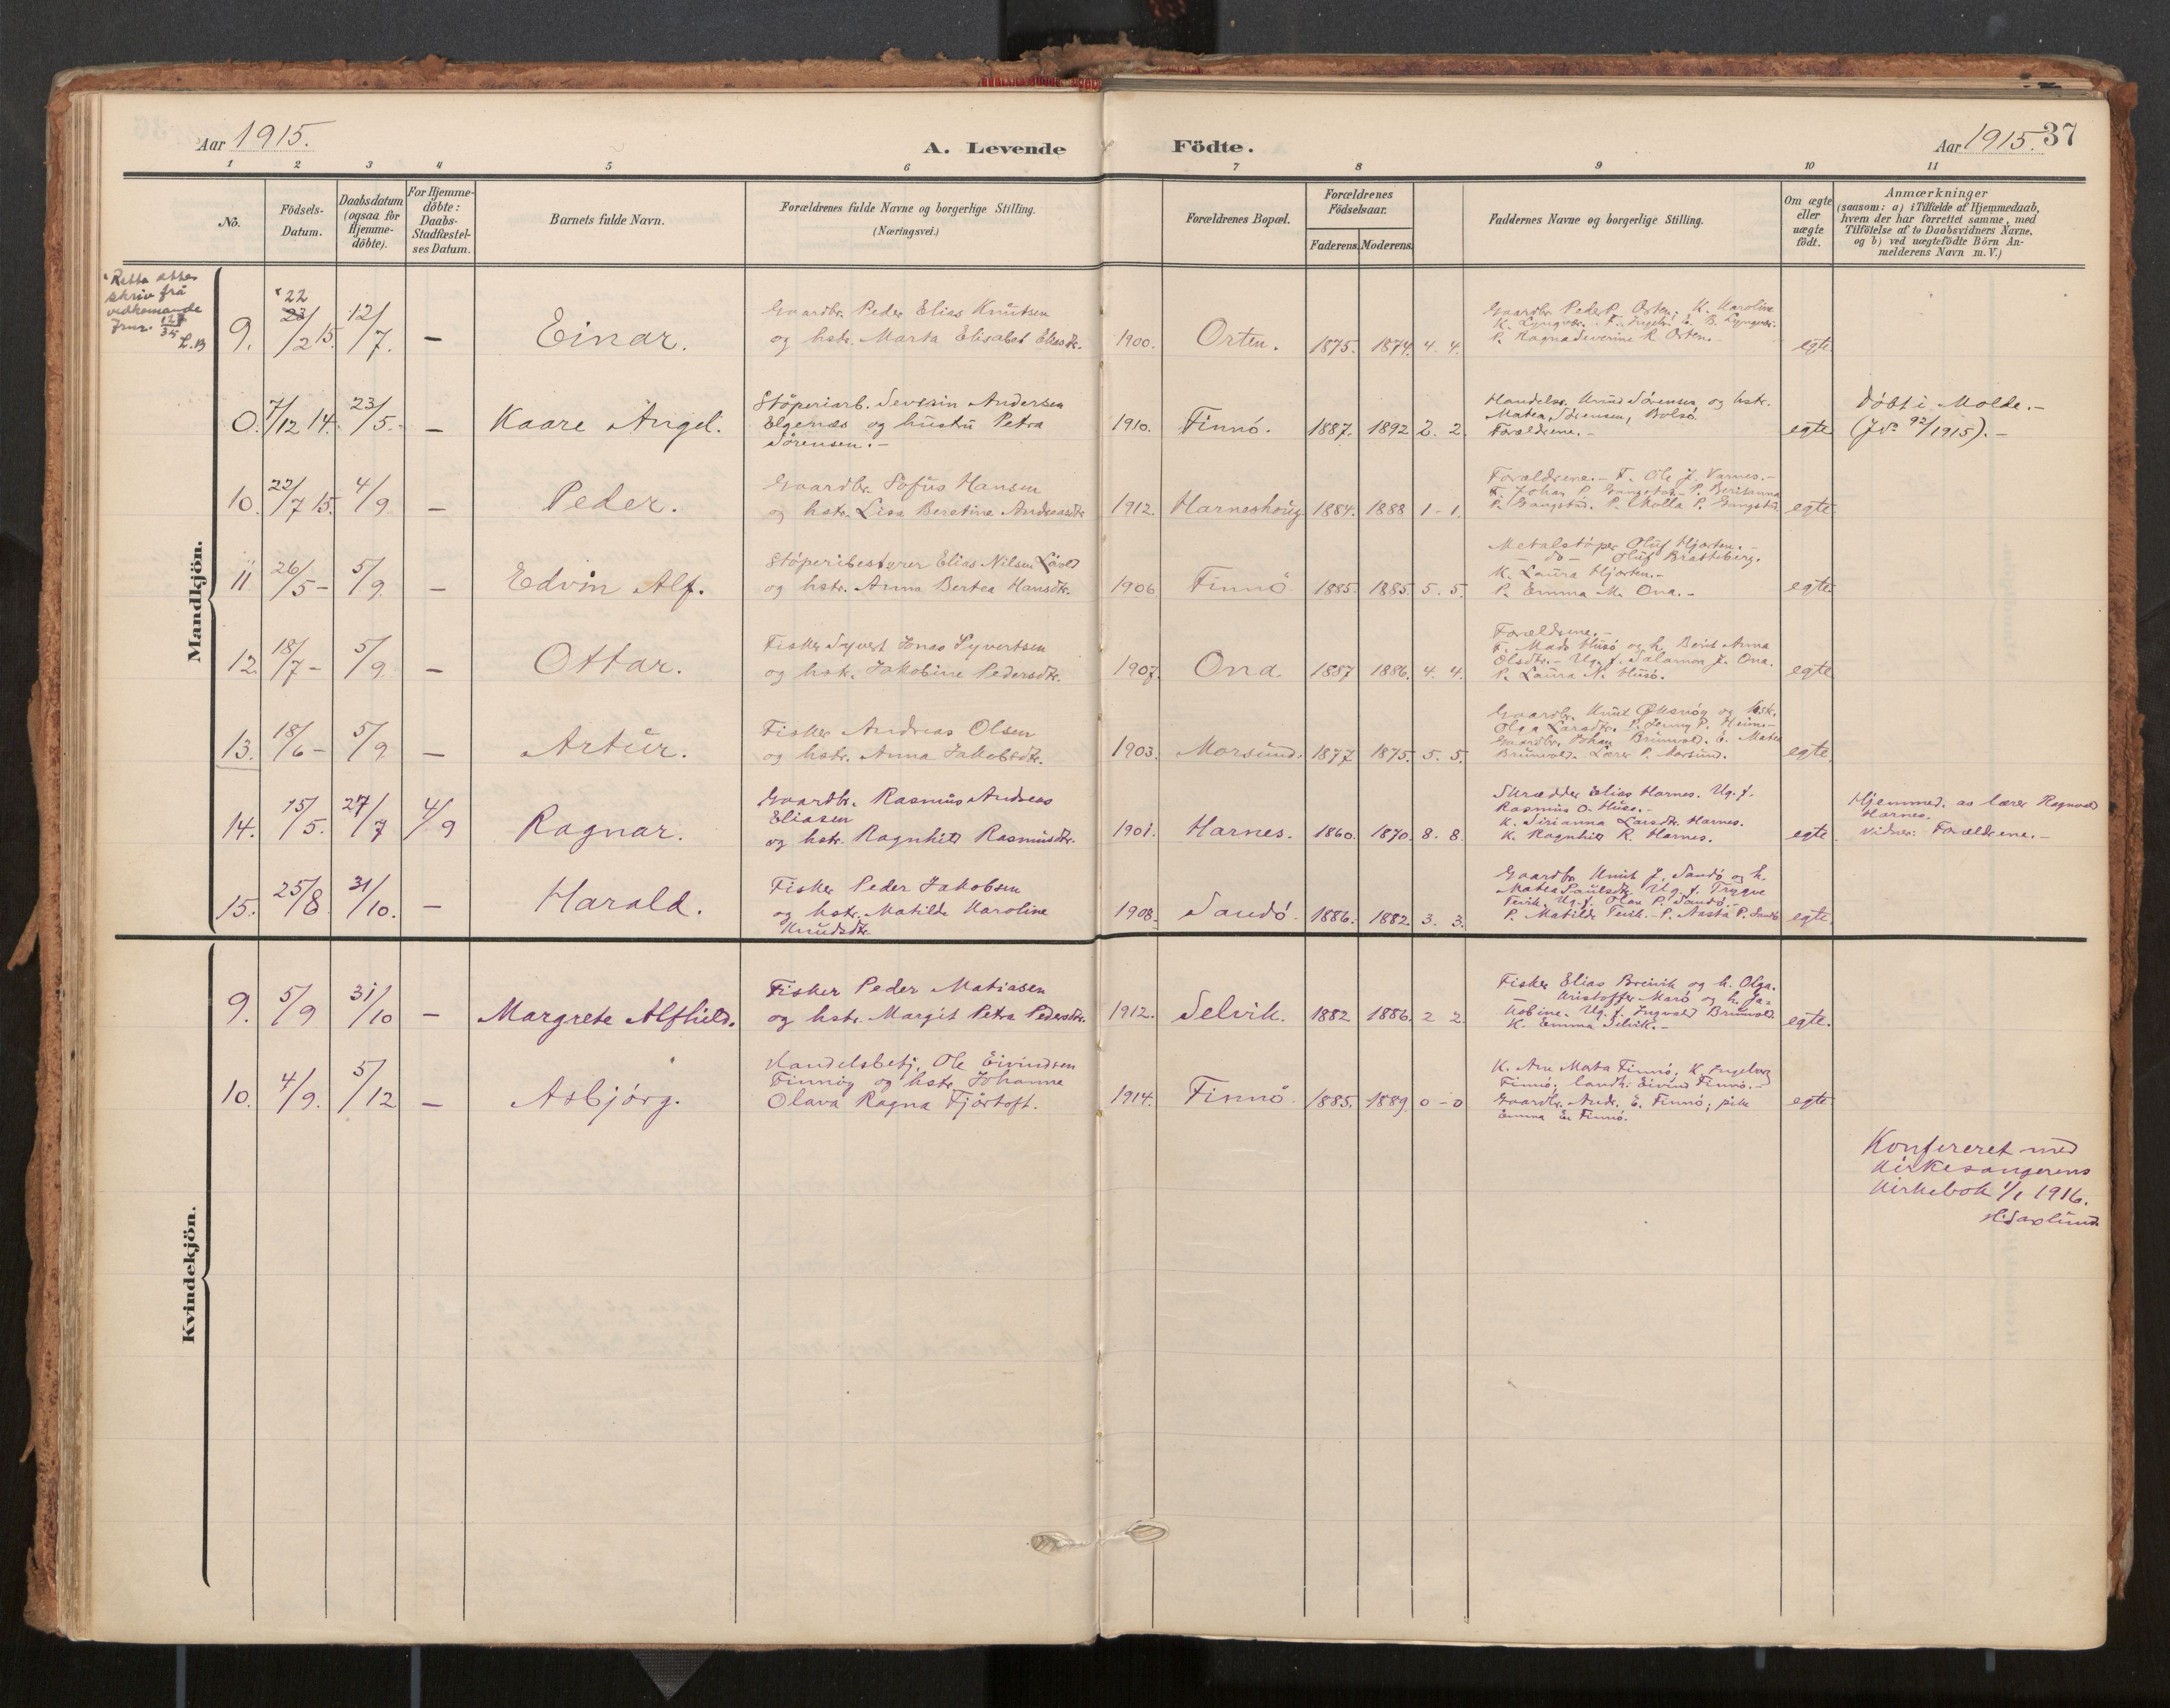 Aar 1915.
A. Levende Födte.
Aar 1915. 37
1 2 3 4 5 6 7 8 9 10 11
No.
Födsels-Datum.
Daabsdatum (ogsaa for Hjemme-döbte).
For Hjemme-döbte: Daabs-Stadfæstel-ses Datum.
Barnets fulde Navn.
Forældrenes fulde Navne og borgerlige Stilling.
(Næringsvei.)
Forældrenes Bopæl.
Forældrenes Födselsaar.
Faderens. Moderens.
Faddernes Navne og borgerlige Stilling.
Om ægte eller uægte födt.
Anmærkninger
(saasom: a) i Tilfælde af Hjemmedaab,
hvem der har forrettet samme, med
Tilföielse af to Daabsvidners Navne,
og b) ved uægtefödte Börn An-
melderens Navn m. V.)
Retta etter
skriv frå
vedkomande
Jrnr. 127/35
L.B
Mandkjön.
9. 22 23/2 15. 12/7. – Einar.
Gaardbr. Peder Elias Knutsen
og hstr. Marta Elisabet Eliasdtr. 1900. Orten. 1875. 1874. 4. 4.
Gaardbr. Peder P. Orten. K. Karoline
K. Lyngvær. F. Ingebr. E. B. Lyngvær.
P. Ragna Severine R. Orten.- egte
0. 7/12 14. 23/5.- – Kaare Angel.
Stöperiarb. Severin Andersen
Elgenæs og hustru Petra
Sörensen.- 1910. Finnö. 1887. 1892 2. 2.
Handelsr. Knud Sörensen og hstr.
Matea Sörensen, Bolsö.
Forældrene.- egte
Döbt i Molde.-
(J No 92/1915).-
10. 22/7 15. 4/9 – Peder.
Gaardbr. Sofus Hansen
og hstr. Lisa Beretine Andreasdtr. 1912. Harneshöug 1884. 1888 1-1.
Forældrene.- F. Ole J. Varnes.-
F. Johan P. Gangstad.- P. Beritanna
P. Gangstad. P. Molla P. Gangstad. egte
11. 26/5- 5/9. – Edvin Alf.
Stöperibestyrer Elias Nilsen Lövold
og hstr. Anna Bertea Hansdtr. 1906 Finnö. 1885. 1885. 5. 5.
Metalstöper Oluf Hjorten.-
- do - Oluf Bratteberg.
K. Laura Hjorten.-
P. Emma M. Ona.- egte
12. 18/7- 5/9. – Ottar.
Fisker Syvert Jonas Syvertsen
og hstr. Jakobine Pedersdtr. 1907. Ona. 1887 1886. 4. 4.
Forældrene.-
F. Mads Husö og h. Berit Anna
Olsdtr.- Ug. f. Salamon J. Ona.
P. Laura N. Husö. egte
13. 18/6- 5/9. – Artur.
Fisker Andreas Olsen
og hstr. Anna Jakobsdtr. 1903. Morsund. 1877 1875. 5. 5.
Gaardbr. Knut Öksnöy og hstr.
Olga Larsdtr. P. Jenny P. Heim.-
Gaardbr. Johan Brunvold. E. Matea
Brunvold. Lærer P. Morsund. egte
14. 15/5. 27/7 4/9 Ragnar.
Gaardbr. Rasmus Andreas
Eliasen
og hstr. Ragnhild Rasmusdtr. 1901. Harnes. 1860. 1870. 8. 8.
Skrædder Elias Harnes. Ug. f.
Rasmus O. Huse.-
K. Sirianna Larsdtr. Harnes.
K. Ragnhild R. Harnes. egte
Hjemmed. av lærer Ragnvald
Harnes.
Vidner: Forældrene.-
15. 25/8. 31/10. – Harald.
Fisker Peder Jakobsen
og hstr. Matilde Karoline
Knudsdtr. 1908. Sandö. 1886. 1882 3. 3.
Gaardbr. Knut J. Sandö og h.
Matea Paulsdtr. Ug. f. Trygve
Tevik. Ug. f. Olav P. Sandö.-
P. Matilde Tevik.- P. Aasta P. Sandö egte.
Kvindekjön.
9. 5/9 31/10 – Margrete Alfhild.
Fisker Peder Matiasen
og hstr. Margit Petra Pedersdtr. 1912. Selvik. 1882 1886. 2 2
Fisker Elias Breivik og h. Olga.
Kristoffer Marö og h. Ja-
kobine. Ug. f. Ingvald Brunvold.
K. Emma Selvik.- egte.
10. 4/9. 5/12 – Asbjörg.
Handelsbetj. Ole Eivindsen
Finnöy og hstr. Johanna
Olava Ragna Fjörtoft. 1914. Finnö. 1885. 1889. 0-0
K. Ane Mata Finnö, K. Ingeborg
Finnö, landh. Eivind Finnö.-
Gaardbr. Andr. E. Finnö; pike
Emma E. Finnö. egte
Konfereret med
Kirkesangerens
Kirkebok 1/1 1916.
H. Saxlund